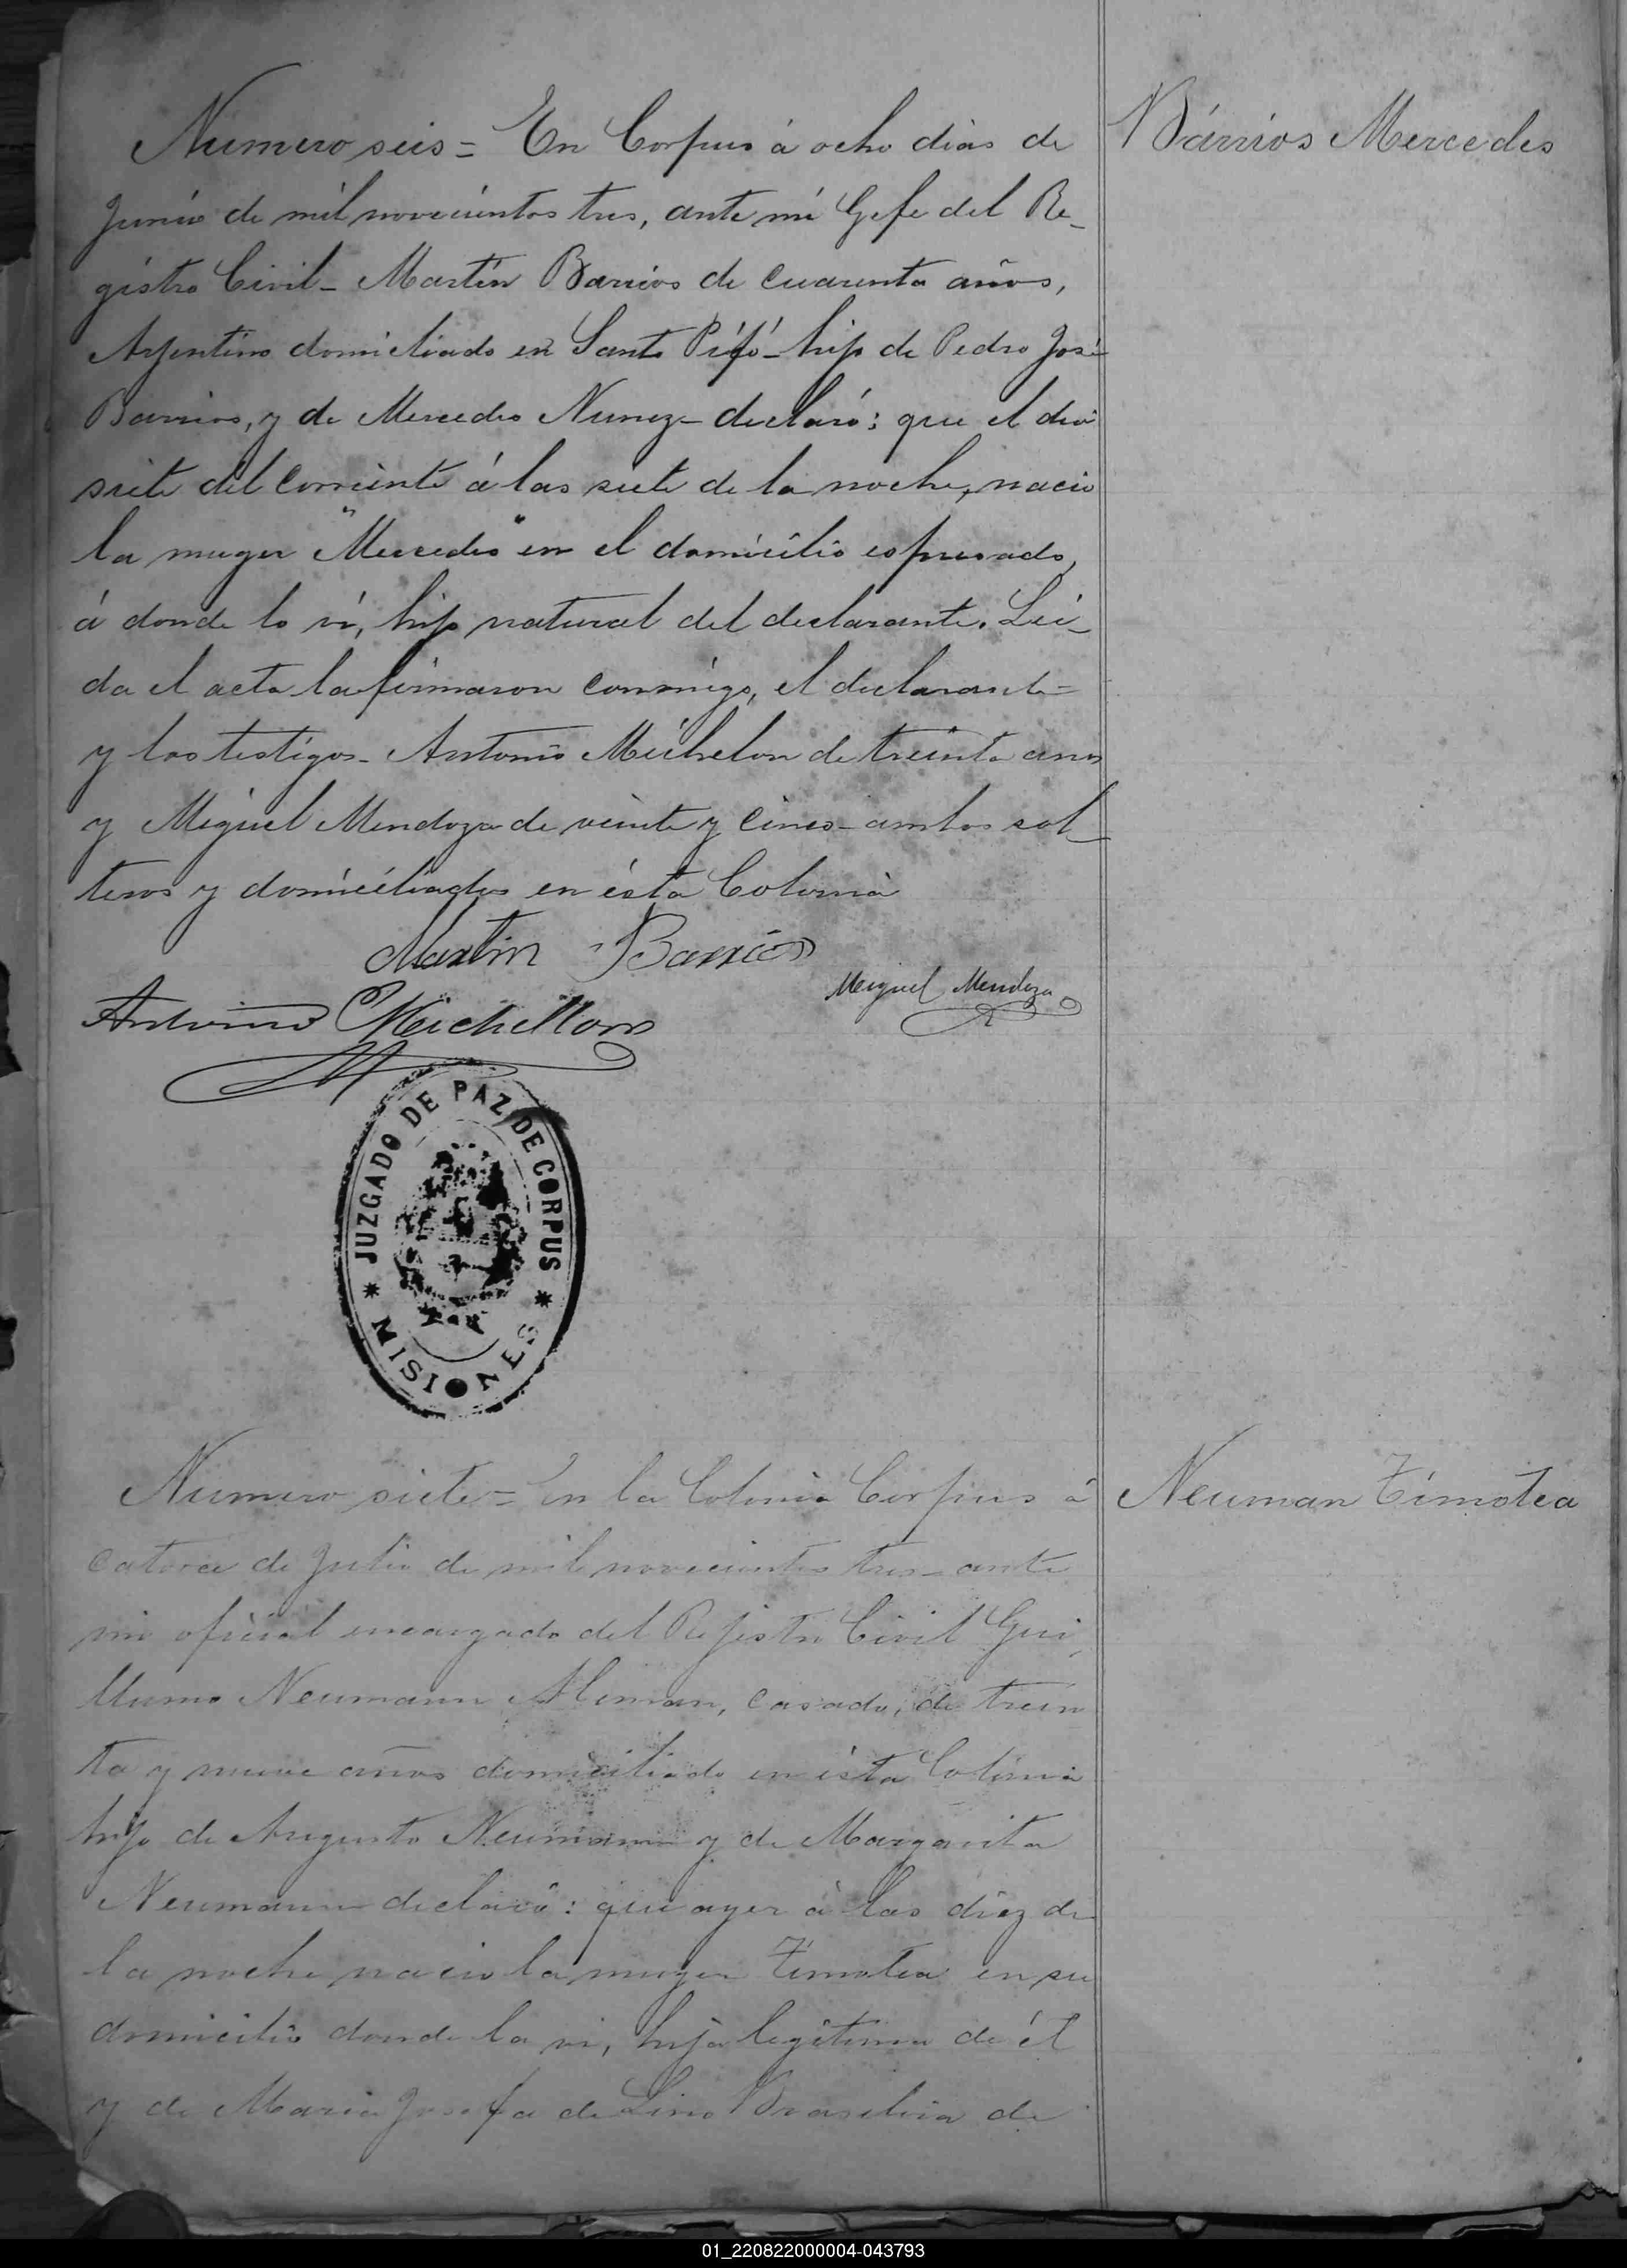 Numero seis = En Corpus á ocho dias de
Bárrios Mercedes
Junio de mil novecientos tres, ante mi Gefe del Re-
gistro Civil - Martin Barrios de cuarenta años,
Argentino domiciliado en Santo Pipó - hijo de Pedro José
Barrios, y de Mercedes Nunez - declaró: que el dia
siete del corriente á las siete de la noche, nació
la muger "Mercedes" en el domicilio espresado,
á donde lo ví, hijo natural del declarante. Lei-
da el acta la firmaron conmigo, el declarante =
y los testigos - Antonio Michelon de treinta anos
y Miguel Mendoza de veinte y cinco - ambos sol-
teros y domiciliados en ésta Colonia
Martin Barrios
Miguel Mendoza
Antonio Michellon
JUZGADO DE PAZ DE CORPUS
* MISIONES *
Numero siete = En la Colonia Corpus á
Neuman Timotea
catorce de Julio de mil novecientos tres - ante
mi oficial encargado del Rejistro Civil Gui
llermo Neumann Aleman, casado, de trein
ta y nueve años domiciliado en ésta Colonia
hijo de Augusto Neumann y de Margarita
Neumann declaró: que ayer á las diez de
la noche nacio la muger Timotea en su
domicilio donde la vi, hija legitima de él
y de Maria Josefa de Lino Brasilera de
01_220822000004-043793